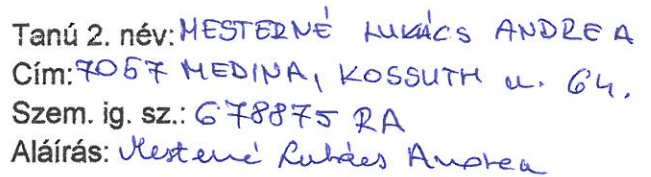 Tanú 2. név: MESTERNÉ LUKÁCS ANDREA
Cím: 7057 MEDINA, KOSSUTH u. 64.
Szem. ig. sz.: 678875 RA
Aláírás: Mesterné Lukács Andrea